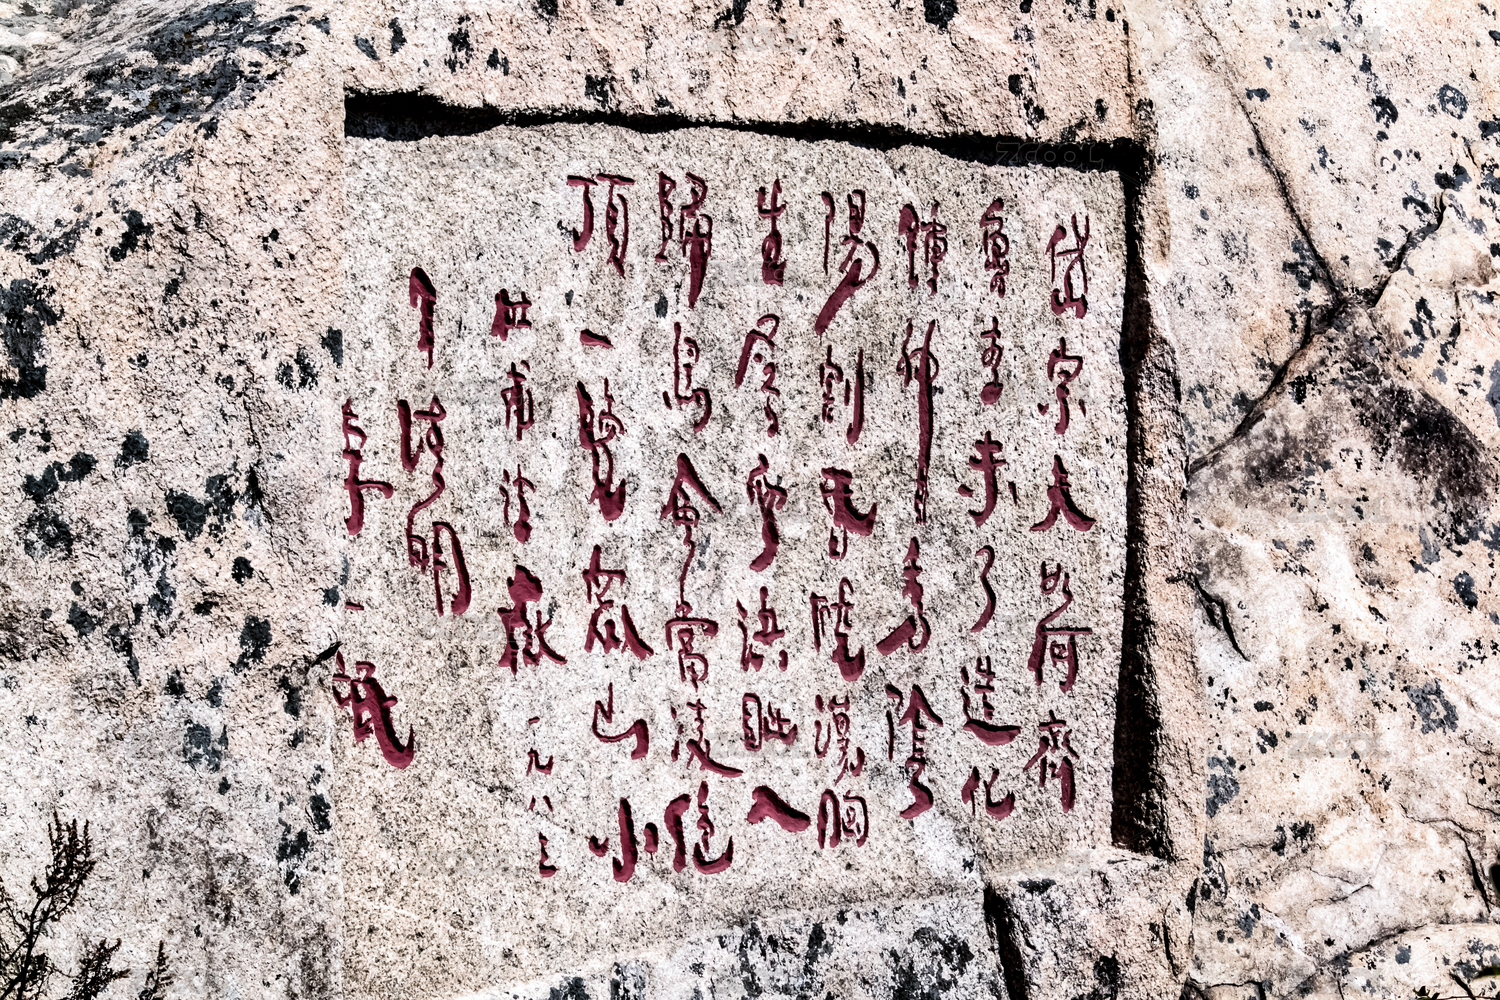 岱宗夫如何齊
魯青未了造化
鍾神秀陰
陽割昏曉盪胸
生層雲決眦入
歸鳥會當凌絕
頂一覽眾山小
杜甫望嶽一九八三
年清明
李一氓